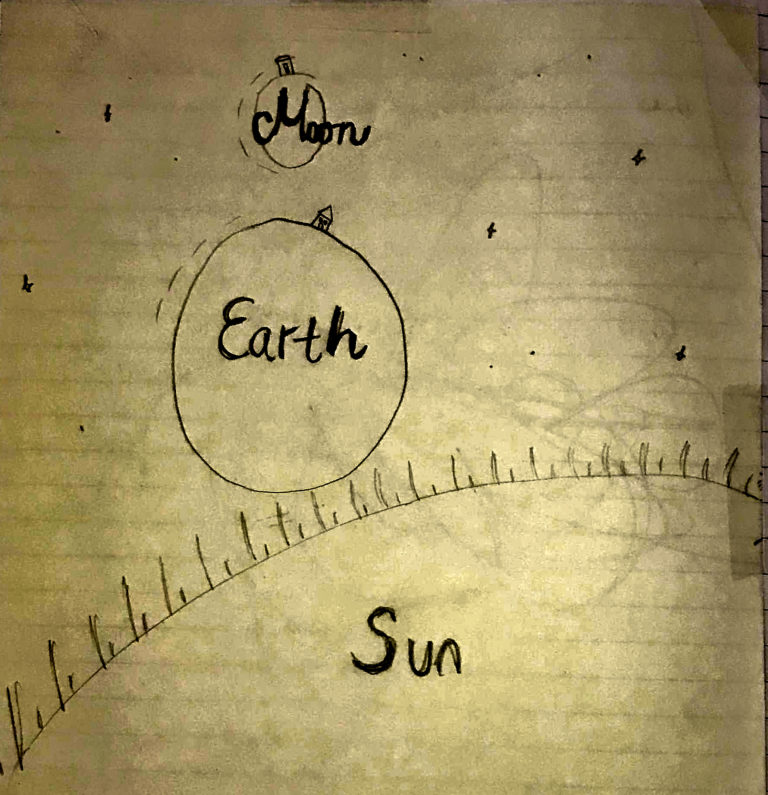 Moon
Earth
Sun